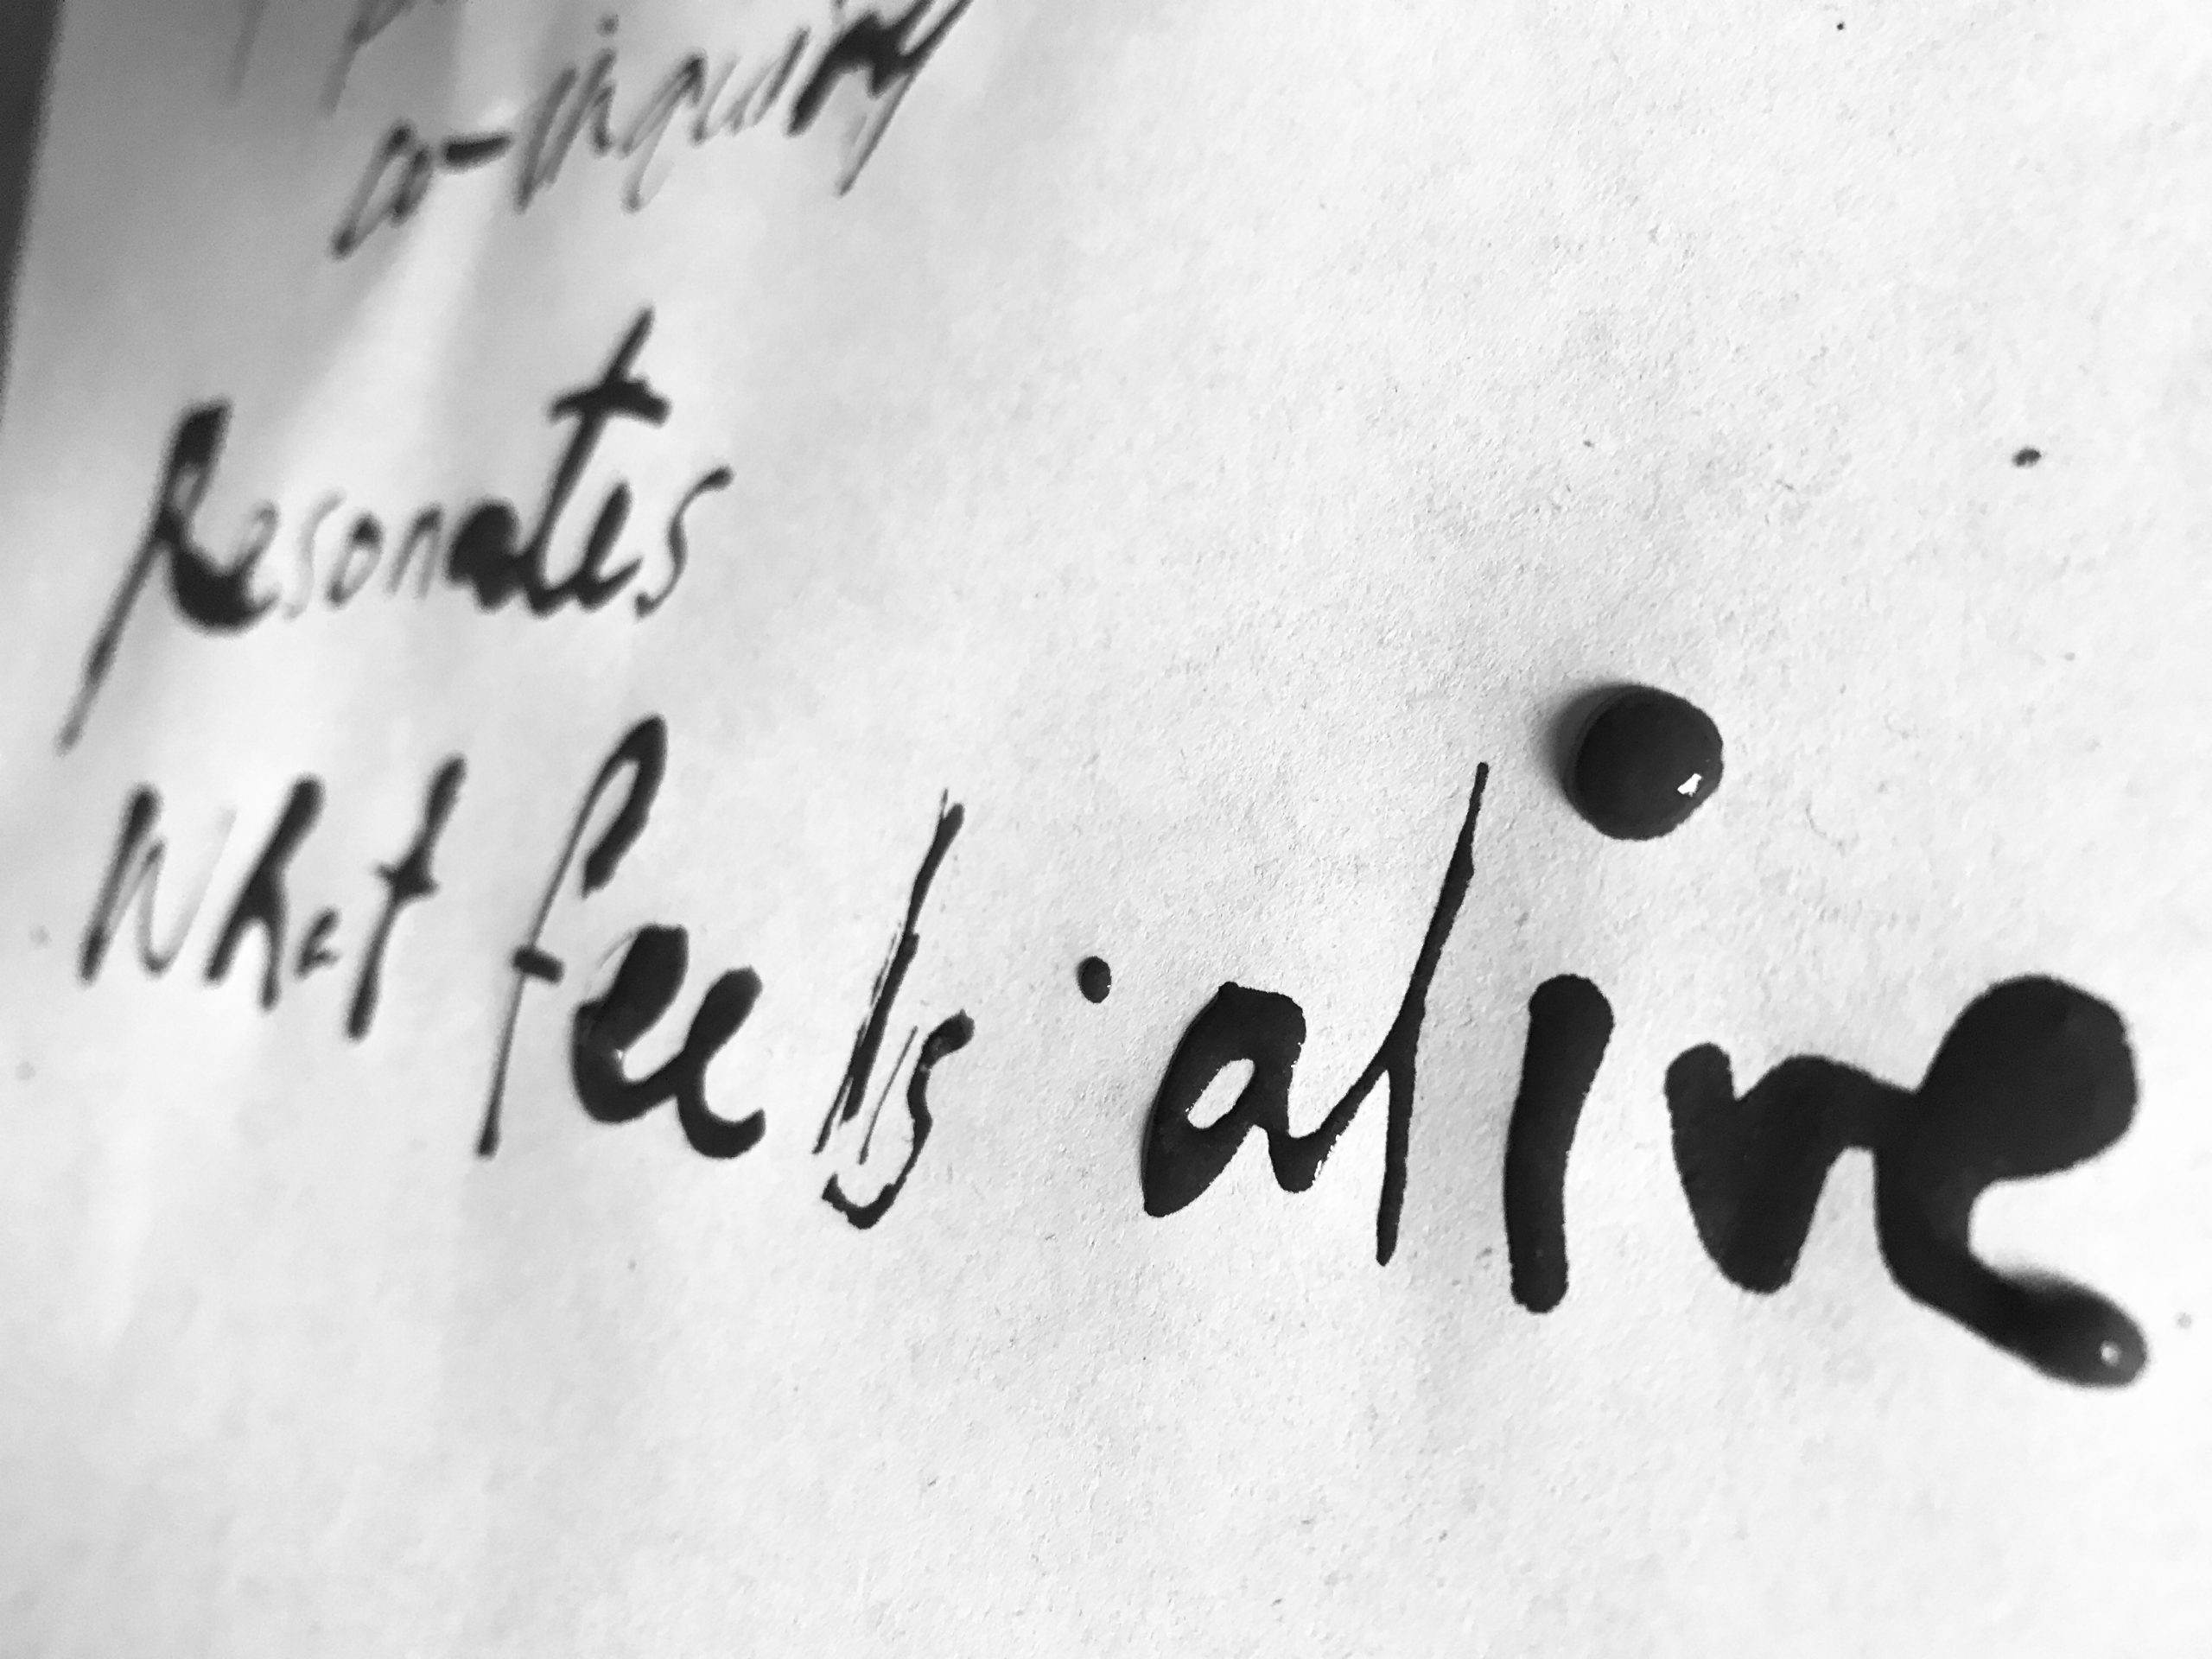 co-inquiry
Resonates
What feels alive